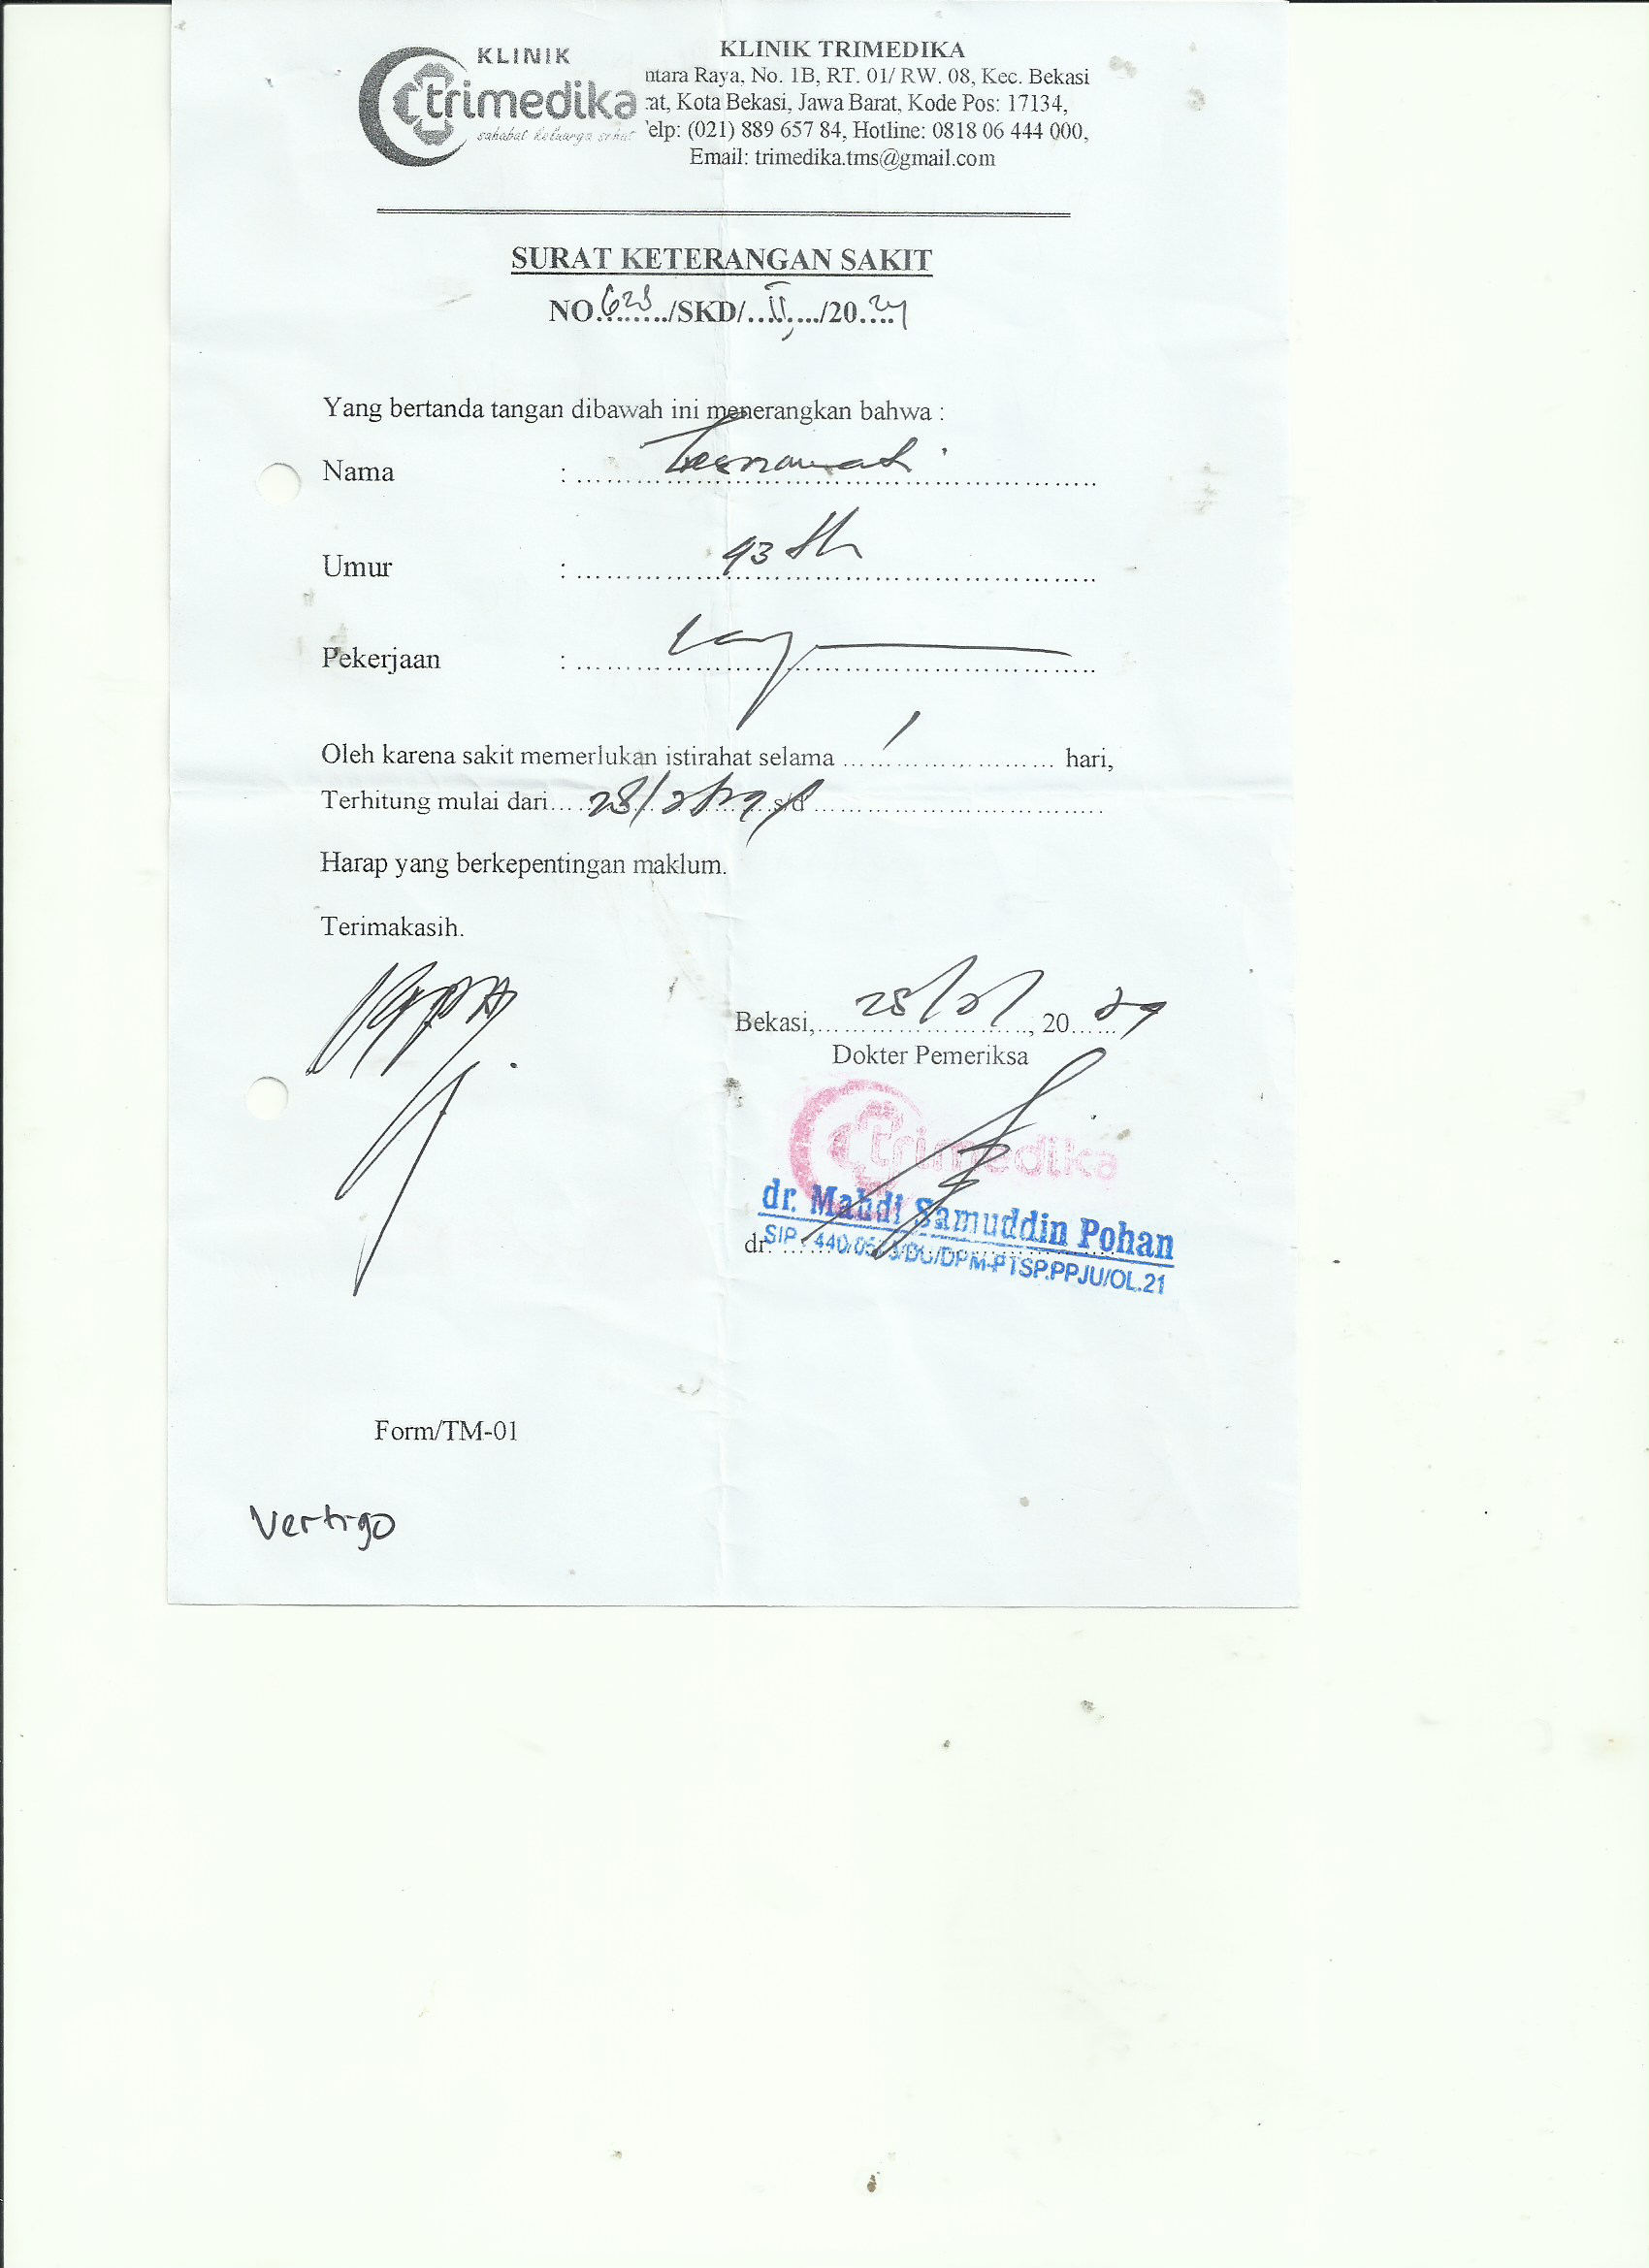 KLINIK
trimedika
sahabat keluarga sehat
KLINIK TRIMEDIKA
ntara Raya, No. 1B, RT. 01/ RW. 08, Kec. Bekasi
rat, Kota Bekasi, Jawa Barat, Kode Pos: 17134,
Telp: (021) 889 657 84, Hotline: 0818 06 444 000,
Email: trimedika.tms@gmail.com
SURAT KETERANGAN SAKIT
NO......../SKD/...II..../20.24
Yang bertanda tangan dibawah ini menerangkan bahwa :
Nama :
Umur : th
Pekerjaan :
Oleh karena sakit memerlukan istirahat selama 1 hari,
Terhitung mulai dari 28/2/24 s/d
Harap yang berkepentingan maklum.
Terimakasih.
Bekasi, 28/2/, 20 24
Dokter Pemeriksa
trimedika
dr. Mahdi Samuddin Pohan
dr.
SIP : DPM-PTSP.PPJU/OL.21
Form/TM-01
Vertigo